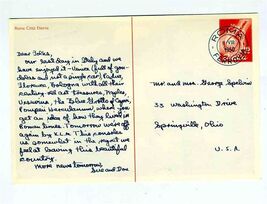 Roma Città Eterna
Dear Folks,
Our last day in Italy and we
have enjoyed it - Venice (full of gon-
dolas and not a single car) Padua,
Florence, Bologna with all their
art treasures, Naples,
Vesuvius, the Blue Grotto of Capri,
Pompeii Herculaneum, where you
get an idea of how they lived in
Roman times. Tomorrow we're off
again by KLM. This consoles
us somewhat in the regret we
feel at leaving this beautiful
country.
More news tomorrow,
Sue and Don
ROMA
Mr. and Mrs. George Spelvin
33 Washington Drive
Springville, Ohio
U.S.A